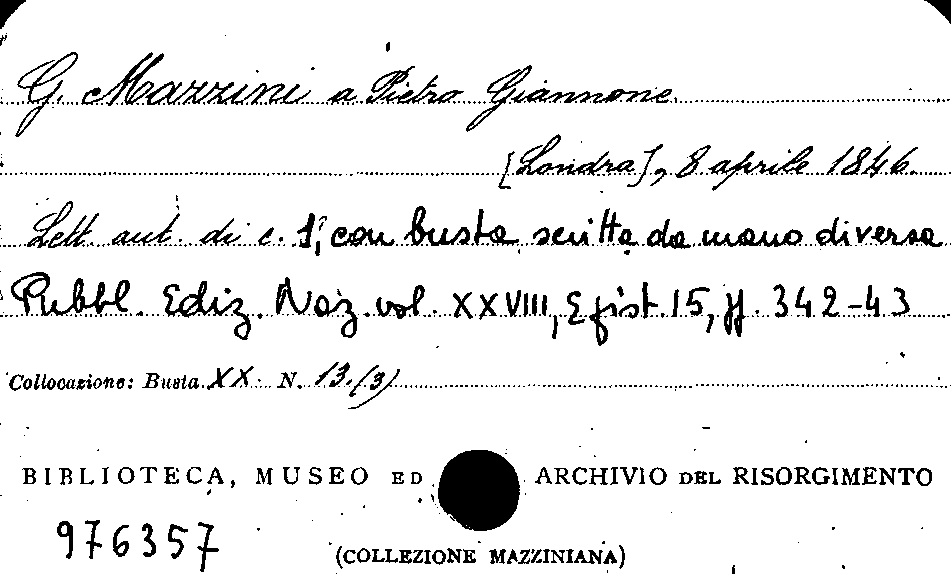 G. Mazzini a Pietro Giannone.
[Londra], 8 aprile 1846.
Lett. aut. di c. 1, con busta scritta da mano diversa
Pubbl. Ediz. Naz. vol. XXVIII, Epist. 15, pp. 342-43
Collocazione: Busta XX N. 13. (3)
BIBLIOTECA, MUSEO ED ARCHIVIO DEL RISORGIMENTO
976357
(COLLEZIONE MAZZINIANA)